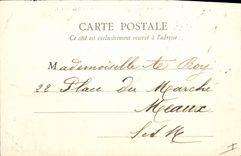 CARTE POSTALE
Ce côté est exclusivement réservé à l'adresse
Mademoiselle A. Roy
22 Place du Marché
Meaux
S et M